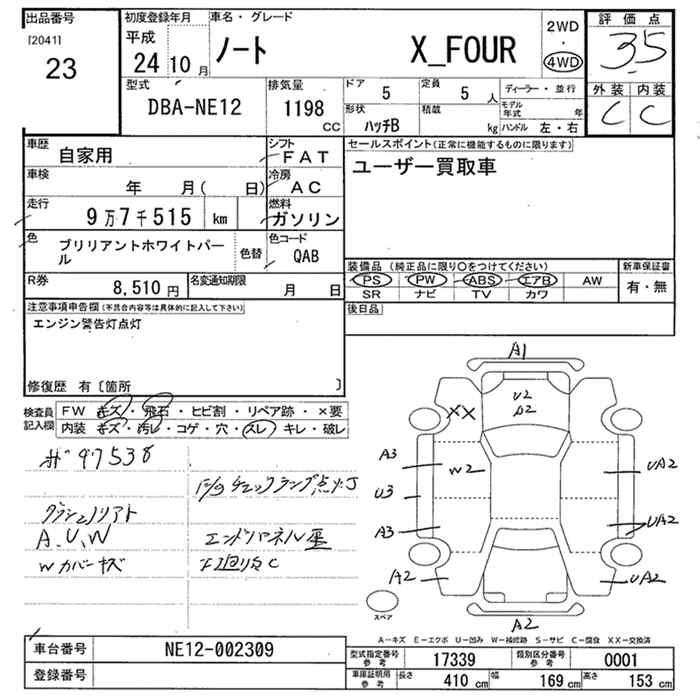 出品番号
[2041]
23
初度登録年月
平成
24 10 月
車名・グレード
ノート X_FOUR
2WD
・
4WD
評価点
3.5
外装 内装
C C
型式
DBA-NE12
排気量
1198
CC
ドア
5
定員
5 人
形状
ハッチB
積載
kg
ディーラー・並行
モデル年式 年
ハンドル 左・右
車歴
自家用
シフト
FAT
車検
年 月( 日)
冷房
AC
走行
9万7千515 km
燃料
ガソリン
色
ブリリアントホワイトパール
色替
色コード
QAB
R券
8,510 円
名変通知期限
月 日
セールスポイント(正常に機能するものに限ります)
ユーザー買取車
装備品 (純正品に限り○をつけてください)
PS PW ABS エアB AW
SR ナビ TV カワ
新車保証書
有・無
後日品
注意事項申告欄(不具合内容等は具体的に記入して下さい)
エンジン警告灯点灯
修復歴 有〔箇所 〕
検査員
記入欄
FW キズ・飛石・ヒビ割・リペア跡・×要
内装 キズ・汚レ・コゲ・穴・スレ・キレ・破レ
97538
A、U、W
Wカバーキズ
エンドパネル
A1
U2
A2
XX
A3
W2
U3
A3
A2
UA2
UA2
UA2
A2
スペア
A-キズ E-エクボ U-凹み W-補修跡 S-サビ C-腐食 XX-交換済
車台番号
NE12-002309
登録番号
型式指定番号
参考
17339
類別区分番号
参考
0001
車庫証明用
参考
長さ
410 cm
幅
169 cm
高さ
153 cm